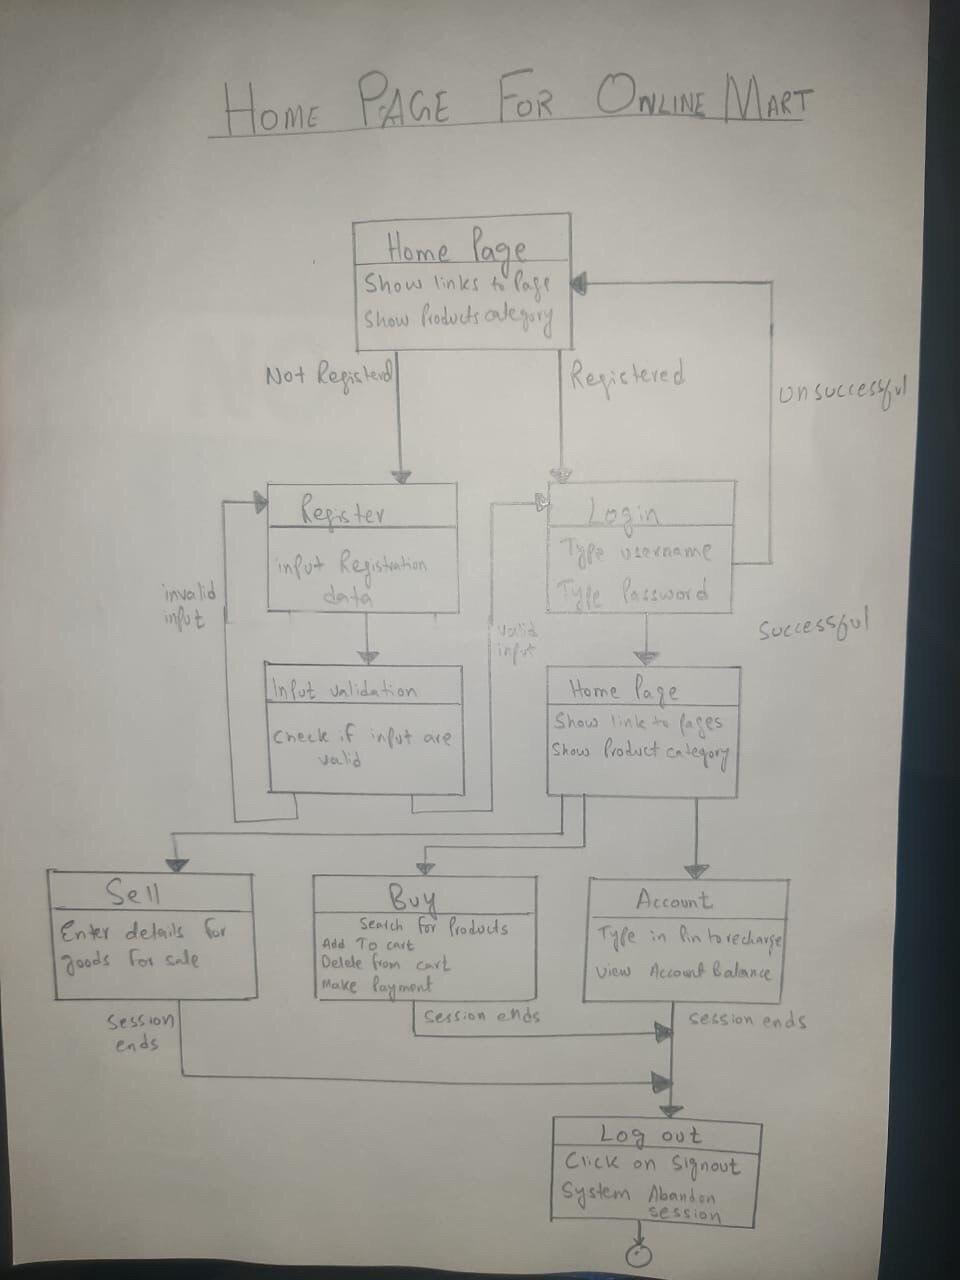 HOME PAGE FOR ONLINE MART
Home Page
Show links to Page
Show Products category
Not Registerd
Registered
unsuccessful
Register
input Registration
data
Login
Type username
Type Password
invalid
input
valid
input
successful
Input validation
check if input are
valid
Home Page
Show link to pages
Show Product category
Sell
Enter details for
goods for sale
Buy
Search for Products
Add To cart
Delete from cart
Make Payment
Account
Type in Pin to recharge
view Account Balance
session
ends
session ends
session ends
Log out
Click on Signout
System Abandon
session